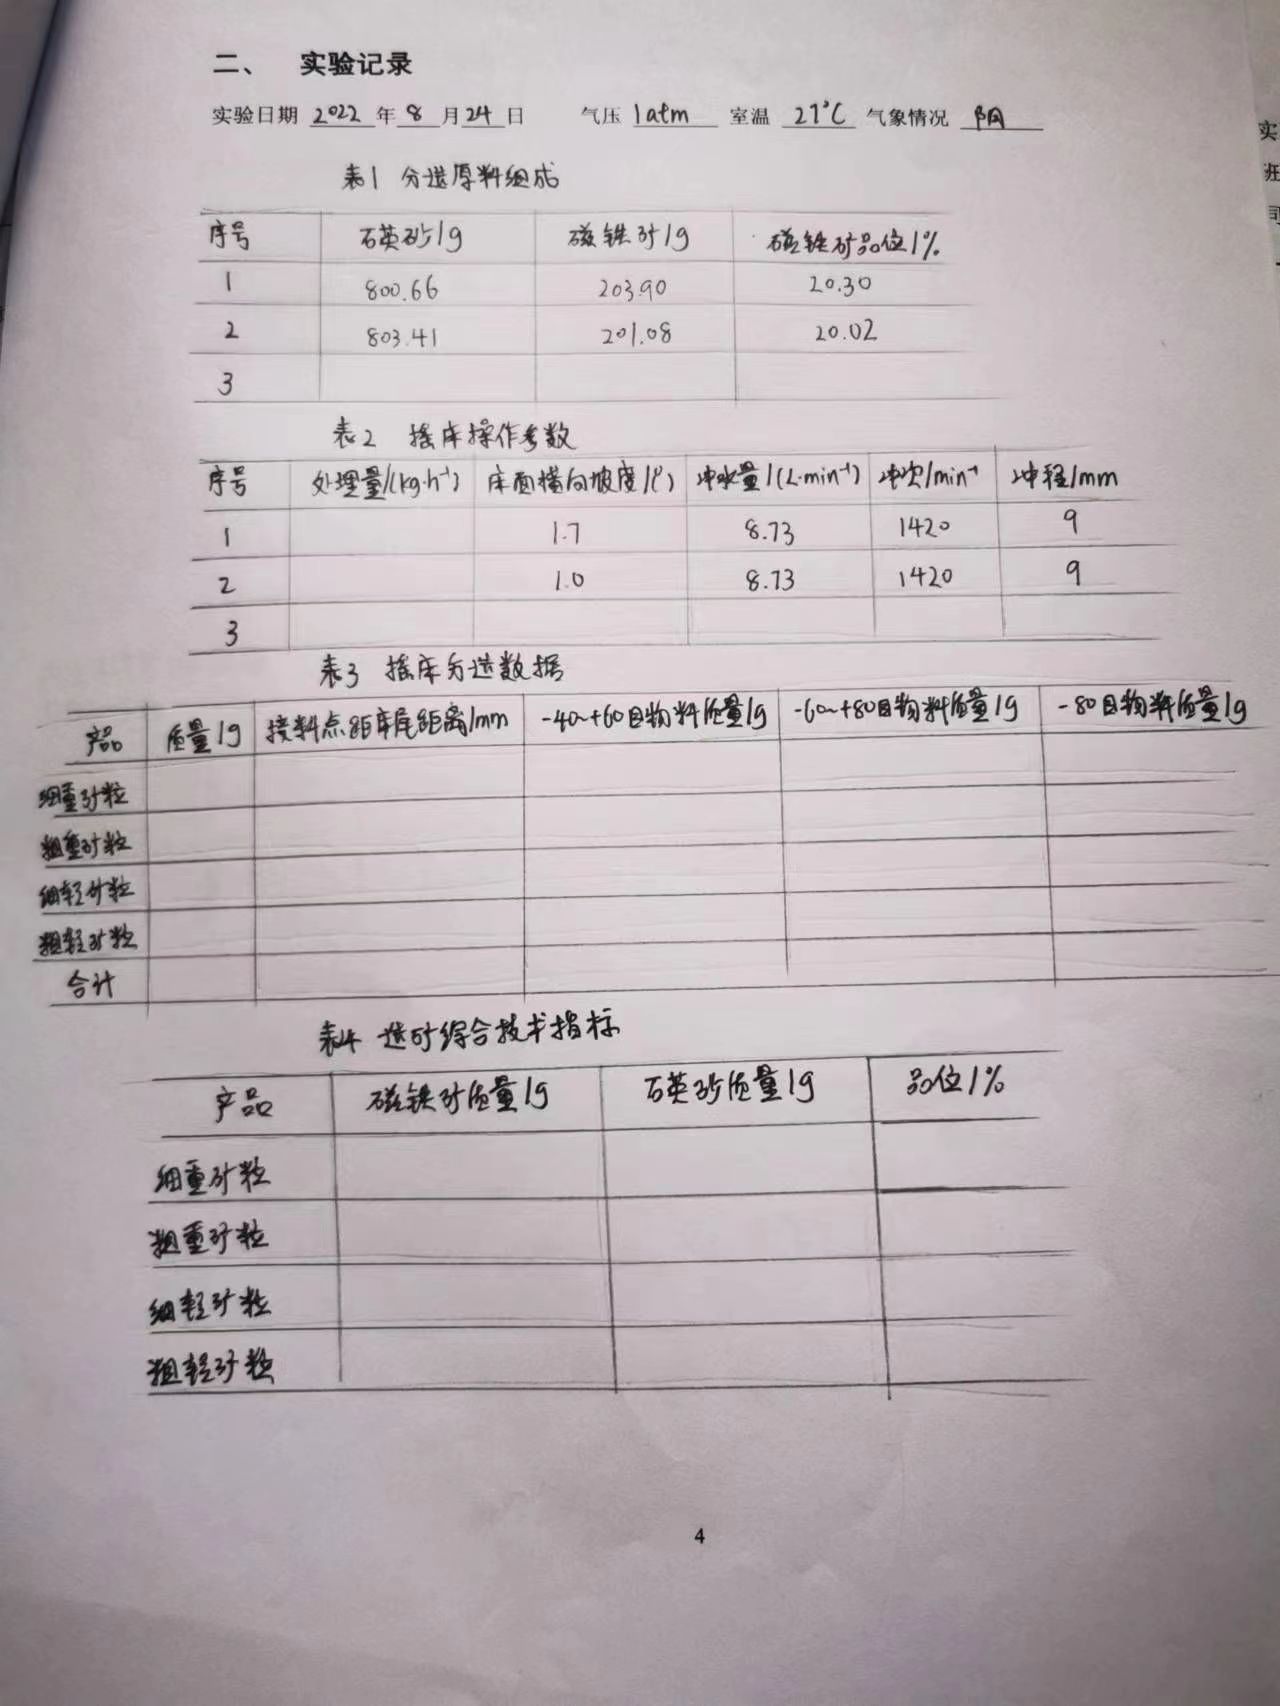 二、 实验记录
实验日期 2022 年 8 月 24 日 气压 1atm 室温 27°C 气象情况 阴
表1 分选原料组成
序号 石英砂/g 磁铁矿/g 磁铁矿品位/%
1 800.66 203.90 20.30
2 803.41 201.08 20.02
3
表2 摇床操作参数
序号 处理量/(kg·h⁻¹) 床面横向坡度/(°) 冲水量/(L·min⁻¹) 冲次/min⁻¹ 冲程/mm
1 1.7 8.73 1420 9
2 1.0 8.73 1420 9
3
表3 摇床分选数据
产品 质量/g 接料点距床尾距离/mm -40~+60目物料质量/g -60~+80目物料质量/g -80目物料质量/g
细重矿粒
粗重矿粒
细轻矿粒
粗轻矿粒
合计
表4 选矿综合技术指标
产品 磁铁矿质量/g 石英砂质量/g 品位/%
细重矿粒
粗重矿粒
细轻矿粒
粗轻矿粒
4
实
班